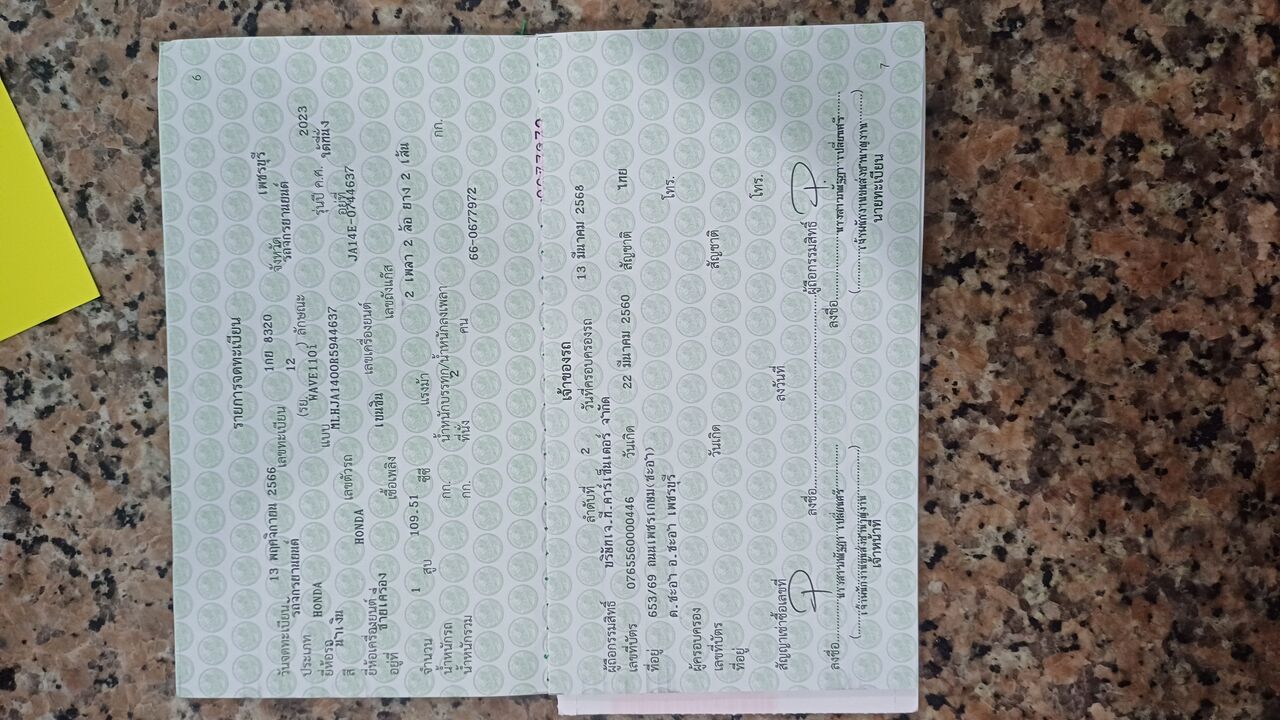 6
รายการจดทะเบียน
วันจดทะเบียน 13 พฤศจิกายน 2566 เลขทะเบียน 1กย 8320 จังหวัด เพชรบุรี
ประเภท รถจักรยานยนต์ (รย. 12 ) ลักษณะ รถจักรยานยนต์
ยี่ห้อรถ HONDA แบบ WAVE110i รุ่นปี ค.ศ. 2023
สี น้ำเงิน เลขตัวรถ MLHJA1400R5944637 อยู่ที่ ใต้ที่นั่ง
ยี่ห้อเครื่องยนต์ HONDA เลขเครื่องยนต์ JA14E-0744637
อยู่ที่ ซ้ายเครื่อง เชื้อเพลิง เบนซิน เลขถังแก๊ส
จำนวน 1 สูบ 109.51 ซีซี แรงม้า 2 เพลา 2 ล้อ ยาง 2 เส้น
น้ำหนักรถ กก. น้ำหนักบรรทุก/น้ำหนักลงเพลา กก.
น้ำหนักรวม กก. ที่นั่ง 2 คน 66-0677972
เจ้าของรถ
ลำดับที่ 2 วันที่ครอบครองรถ 13 มีนาคม 2568
ผู้ถือกรรมสิทธิ์ บริษัทเจ.ที.คาร์เซ็นเตอร์ จำกัด
เลขที่บัตร 0765560000446 วันเกิด 22 มีนาคม 2560 สัญชาติ ไทย
ที่อยู่ 653/69 ถนนเพชรเกษม(ชะอำ)
ต.ชะอำ อ.ชะอำ เพชรบุรี โทร.
ผู้ครอบครอง
เลขที่บัตร วันเกิด สัญชาติ
ที่อยู่ โทร.
สัญญาเช่าซื้อเลขที่ ลงวันที่
ลงชื่อ ผู้ถือกรรมสิทธิ์
ลงชื่อ ลงชื่อ
เจ้าหน้าที่ นายทะเบียน
7